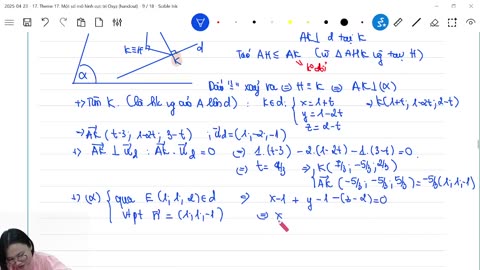 2025-04-23 17. Thême 17. Một số mô hình cực trị Oxyz (handout) 9 / 18 - Suitable Ink
AK ⊥ d tại K
Ta có AH ≤ AK (vì ΔAHK vg tại H)
K≡H d
K
α
k đổi
Dấu "=" xảy ra ⇔ H ≡ K ⇔ AK ⊥ (α)
+> Tìm K. (là hc vg của A lên d) : K∈d: { x = 1+t ⇒ K(1+t, 1-2t; 2-t)
y = 1-2t
z = 2-t
+> AK (t-3; 1-2t; 3-t) ; u_d = (1;-2;-1)
+> AK ⊥ u_d : AK . u_d = 0 ⇔ 1.(t-3) - 2.(1-2t) - 1.(3-t) = 0.
⇔ t = 4/3 ⇒ { K(7/3; -5/3; 2/3)
AK (-5/3; -5/3; 5/3) = -5/3 (1; 1; -1)
+> (α) { qua E(1; 1; 2) ∈ d ⇒ x-1 + y-1 -(z-2)=0
Vtpt n = (1; 1; -1) ⇔ x